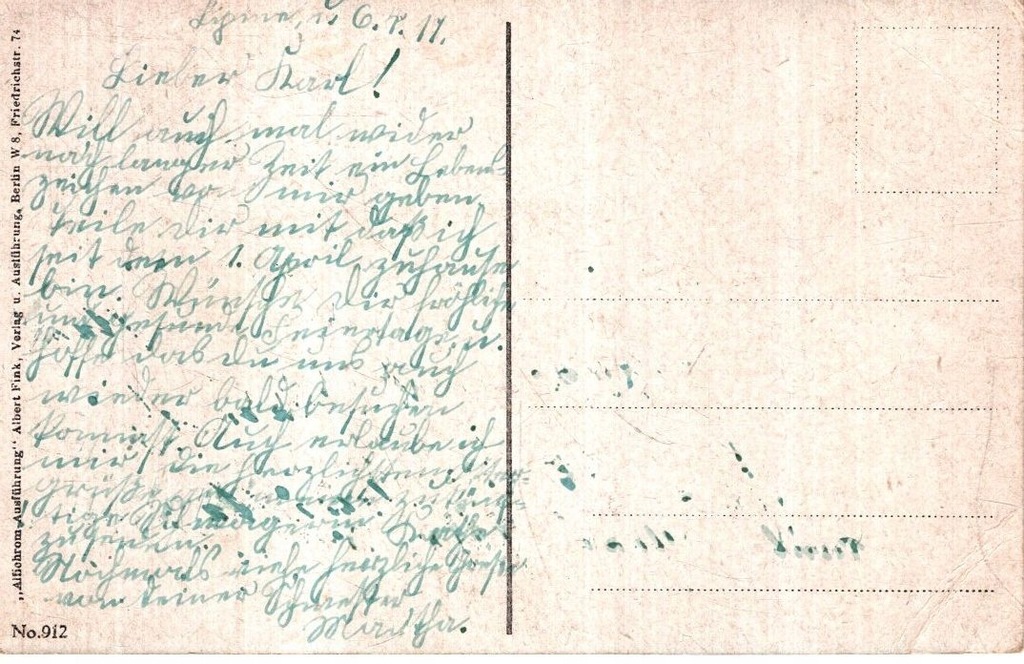 6.4.17.
Lieber Karl!
Will auch mal wider
nach langer Zeit ein Lebens-
zeichen von mir geben,
teile dir mit daß ich
seit dem 1. April zuhause
bin. Wünsche dir fröhliche
und gesunde Feiertage u.
hoffe das du uns auch
wieder bald besuchen
kommst. Auch erlaube ich
mir die herzlichsten
grüße
tige Schwägerin
zusenden.
Nochmals viele herzliche Grüße
von deiner Schwester
Martha.
„Alfiohrom-Ausführung" Albert Fink, Verlag u. Ausführung, Berlin W 8, Friedrichstr. 74
No.912